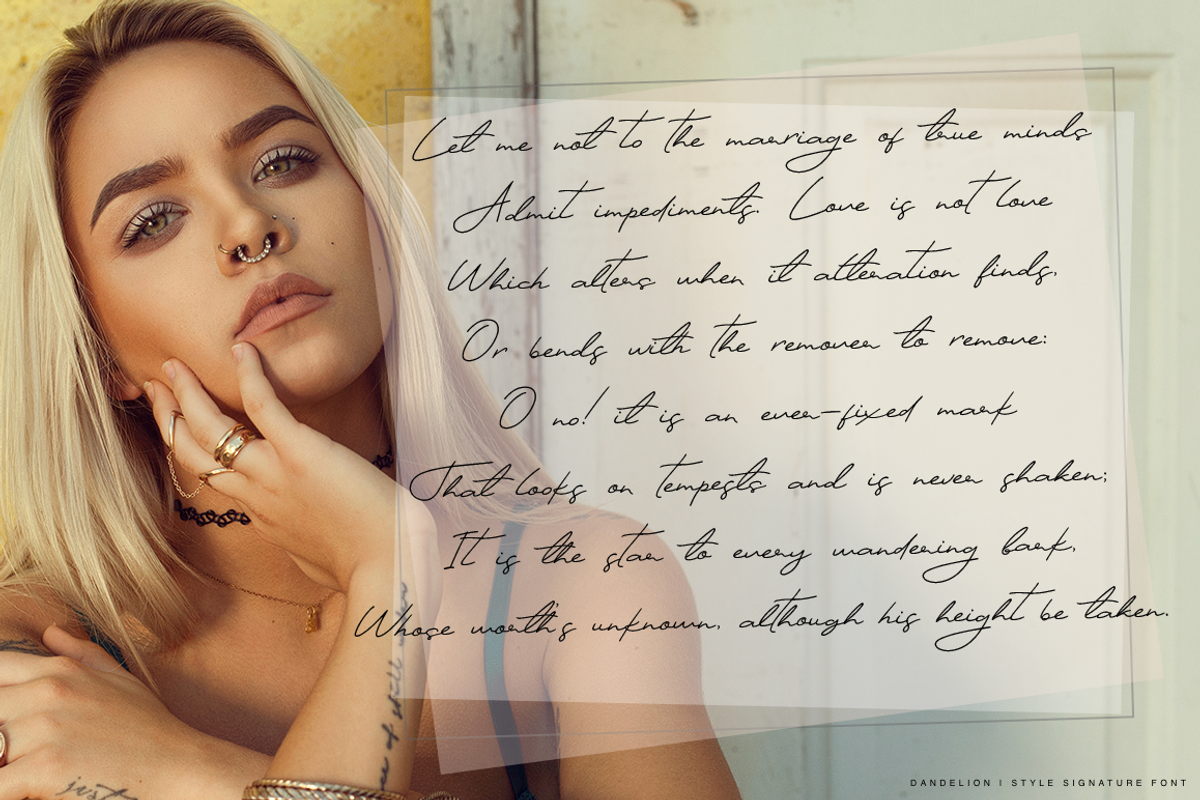 Let me not to the marriage of true minds
Admit impediments. Love is not love
Which alters when it alteration finds,
Or bends with the remover to remove:
O no! it is an ever-fixed mark
That looks on tempests and is never shaken;
It is the star to every wandering bark,
Whose worth's unknown, although his height be taken.
just
DANDELION | STYLE SIGNATURE FONT